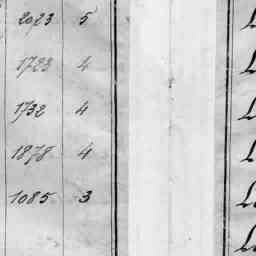 2023 5
1723 4
1732 4
1878 4
1085 3